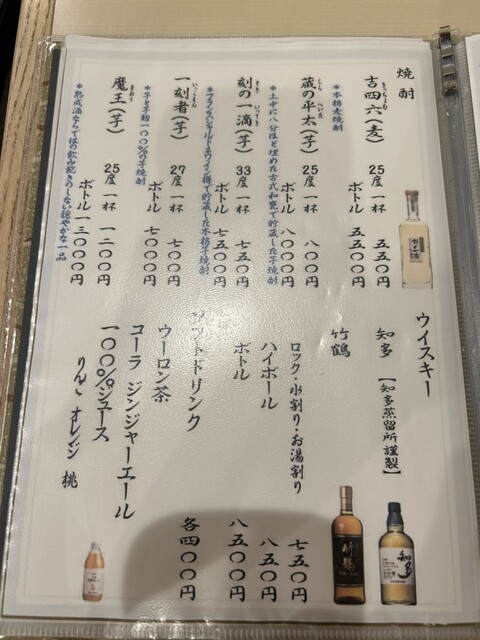 焼酎
吉四六(麦) 25度 一杯 五五〇円
きっちょむ
ボトル 五五〇〇円
*本格麦焼酎
蔵の平太(芋) 25度 一杯 八〇〇円
くら へいた
ボトル 八〇〇〇円
*土中に八分ほど埋めた古式和甕で貯蔵した芋焼酎
刻の一滴(芋) 33度 一杯 七五〇円
とき いってき
ボトル 七五〇〇円
*フランスシャルドネワイン樽で貯蔵した本格芋焼酎
一刻者(芋) 27度 一杯 七〇〇円
いっこもん
ボトル 七〇〇〇円
*芋と芋麹一〇〇%の芋焼酎
魔王(芋) 25度 一杯 一二〇〇円
まおう
ボトル 一三〇〇〇円
*熟成酒ならではの飲み飽きのしない穏やかな一品
ウイスキー
知多 【知多蒸留所謹製】
竹鶴
ロック・水割り・お湯割り 七五〇円
ハイボール 八五〇円
ボトル 八五〇〇円
ソフトドリンク 各四〇〇円
ウーロン茶
コーラ ジンジャーエール
一〇〇%ジュース
りんご オレンジ 桃
知多
竹鶴